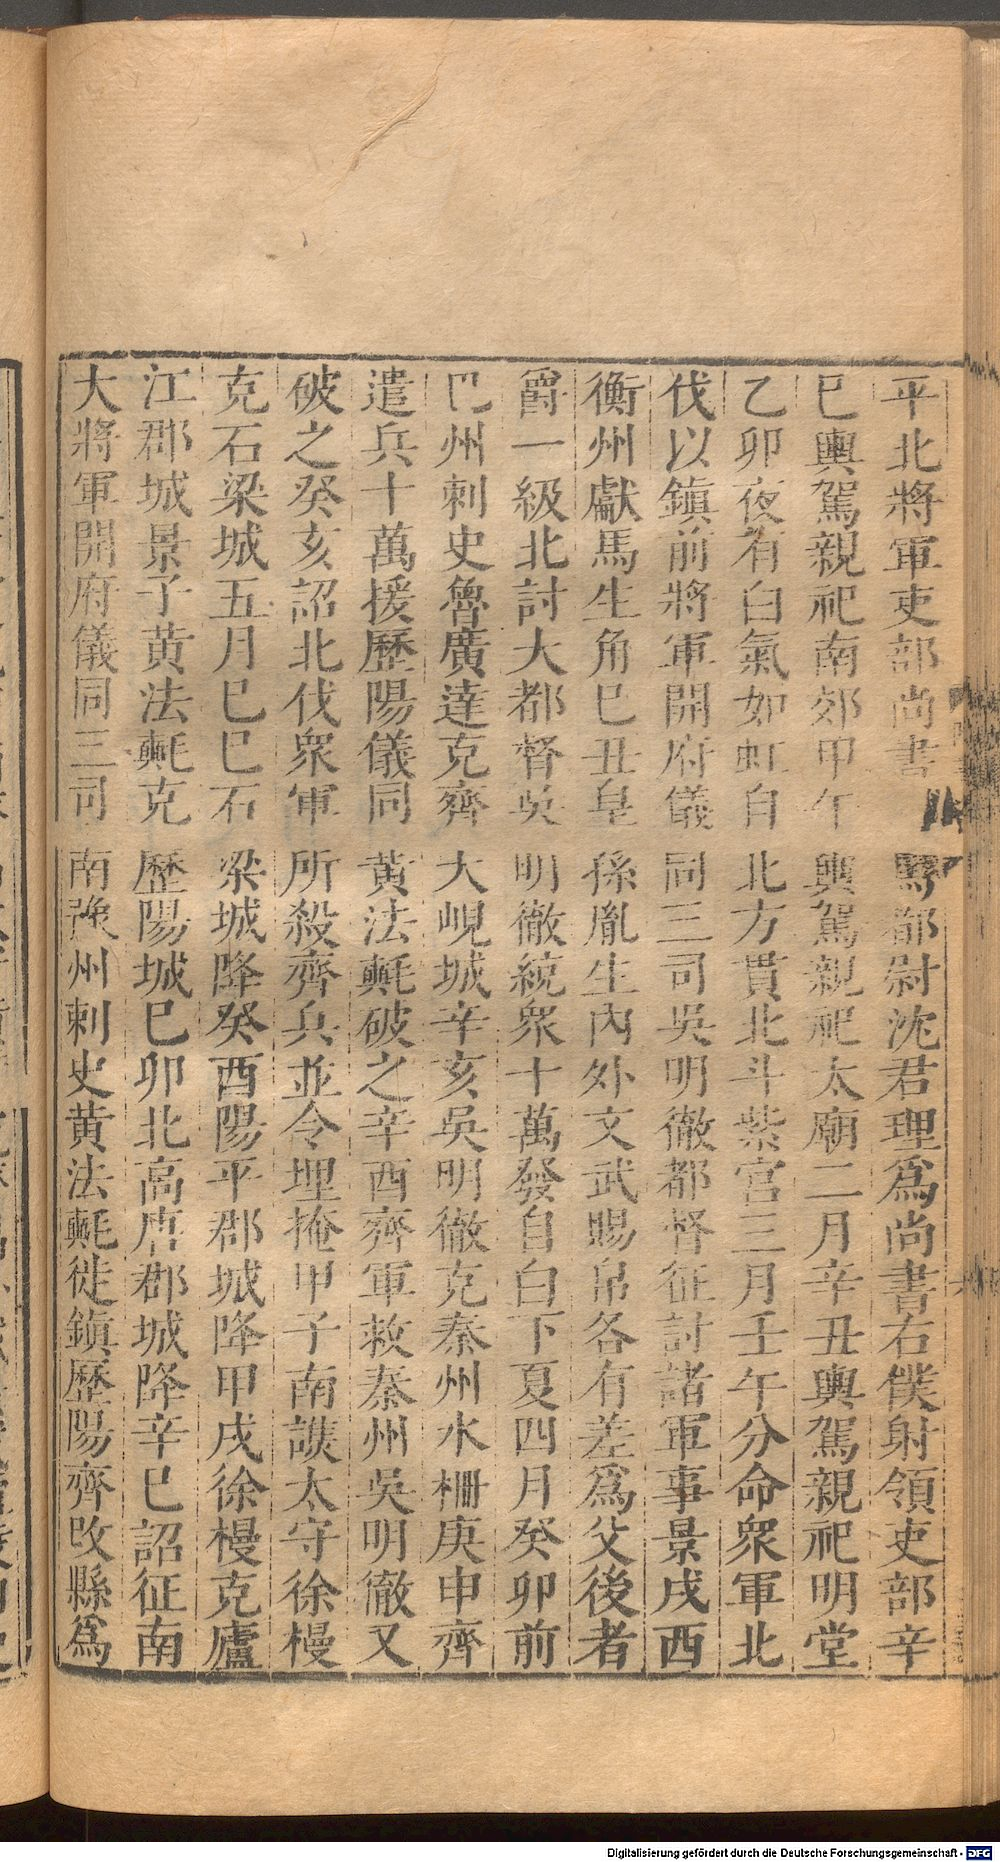 平北將軍吏部尚書駙馬都尉沈君理爲尚書右僕射領吏部辛
巳輿駕親祀南郊甲午輿駕親祀太廟二月辛丑輿駕親祀明堂
乙卯夜有白氣如虹自北方貫北斗紫宮三月壬午分命衆軍北
伐以鎮前將軍開府儀同三司吳明徹都督征討諸軍事景戌西
衡州獻馬生角巳丑皇孫胤生內外文武賜帛各有差爲父後者
爵一級北討大都督吳明徹統衆十萬發自白下夏四月癸卯前
巴州刺史魯廣達克齊大峴城辛亥吳明徹克秦州水柵庚申齊
遣兵十萬援歷陽儀同黃法𣰰破之辛酉齊軍救秦州吳明徹又
破之癸亥詔北伐衆軍所殺齊兵並令埋掩甲子南譙太守徐槾
克石梁城五月巳巳石梁城降癸酉陽平郡城降甲戌徐槾克廬
江郡城景子黃法𣰰克歷陽城巳卯北高唐郡城降辛巳詔征南
大將軍開府儀同三司南豫州刺史黃法𣰰徙鎮歷陽齊改縣爲
Digitalisierung gefördert durch die Deutsche Forschungsgemeinschaft - DFG